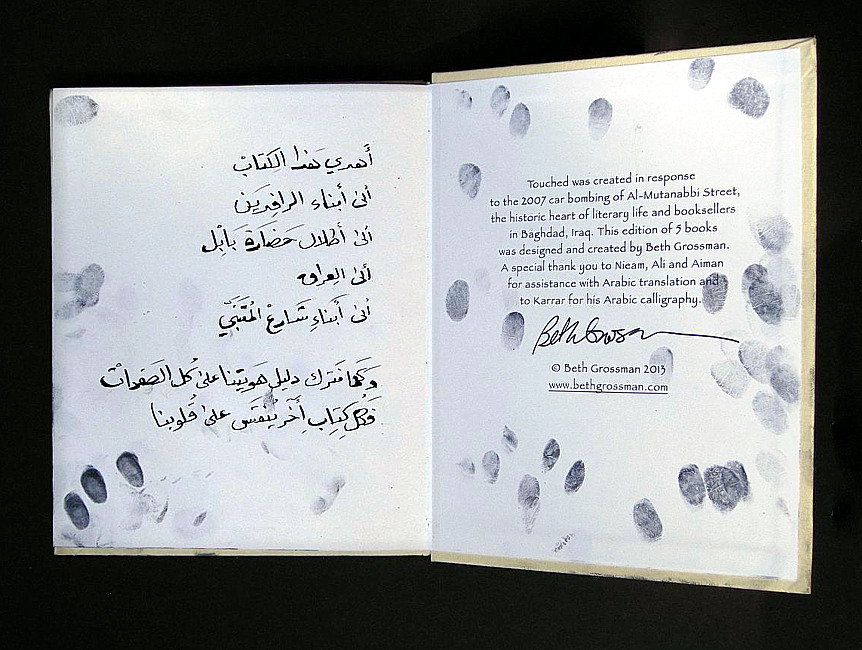 أهدي هذا الكتاب
الى أبناء الرافدين
الى أطلال حضارة بابل
الى العراق
الى أبناء شارع المتنبي
وكما نترك دليل هويتنا على كل الصفحات
فكل كتاب آخر ينقش على قلوبنا
Touched was created in response
to the 2007 car bombing of Al-Mutanabbi Street,
the historic heart of literary life and booksellers
in Baghdad, Iraq. This edition of 5 books
was designed and created by Beth Grossman.
A special thank you to Nieam, Ali and Aiman
for assistance with Arabic translation and
to Karrar for his Arabic calligraphy.
Beth Grossman
© Beth Grossman 2013
www.bethgrossman.com